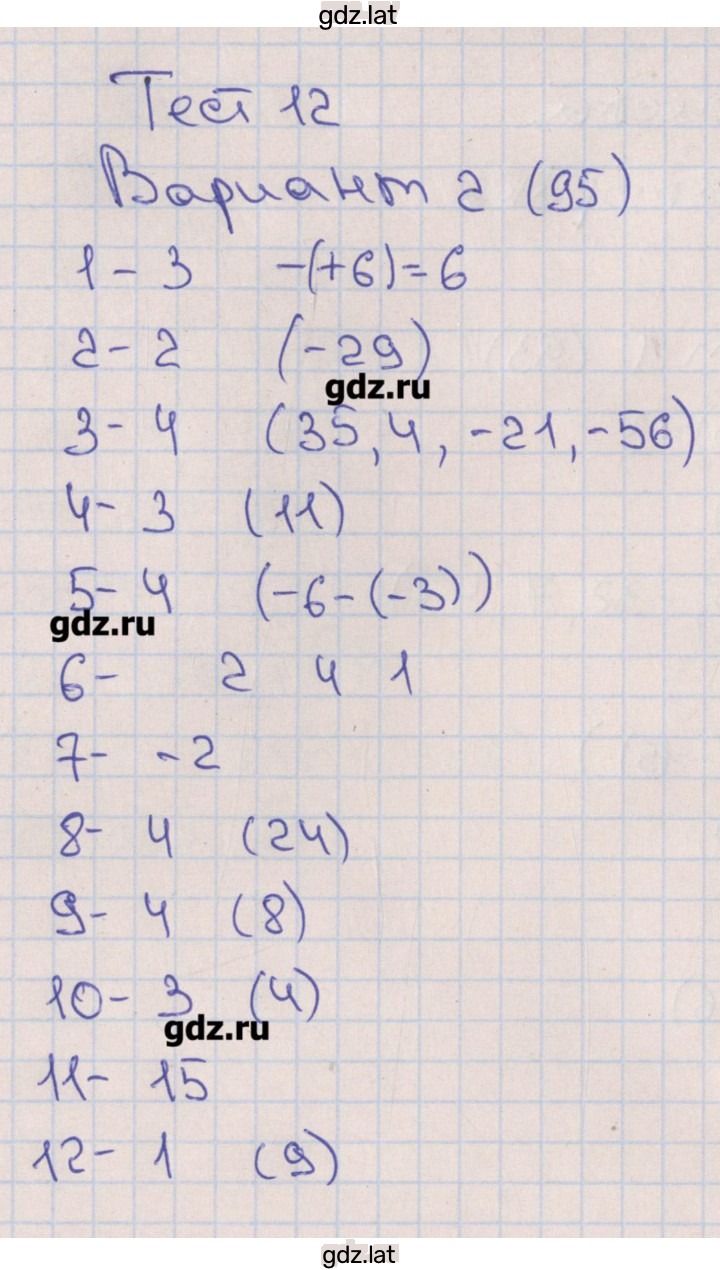 gdz.lat
Тест 12
Вариант 2 (95)
1 - 3 -(+6)=6
2 - 2 (-29)
gdz.ru
3 - 4 (35, 4, -21, -56)
4 - 3 (11)
5 - 4 (-6-(-3))
gdz.ru
6 - 2 4 1
7 - -2
8 - 4 (24)
9 - 4 (8)
10 - 3 (4)
gdz.ru
11 - 15
12 - 1 (9)
gdz.lat